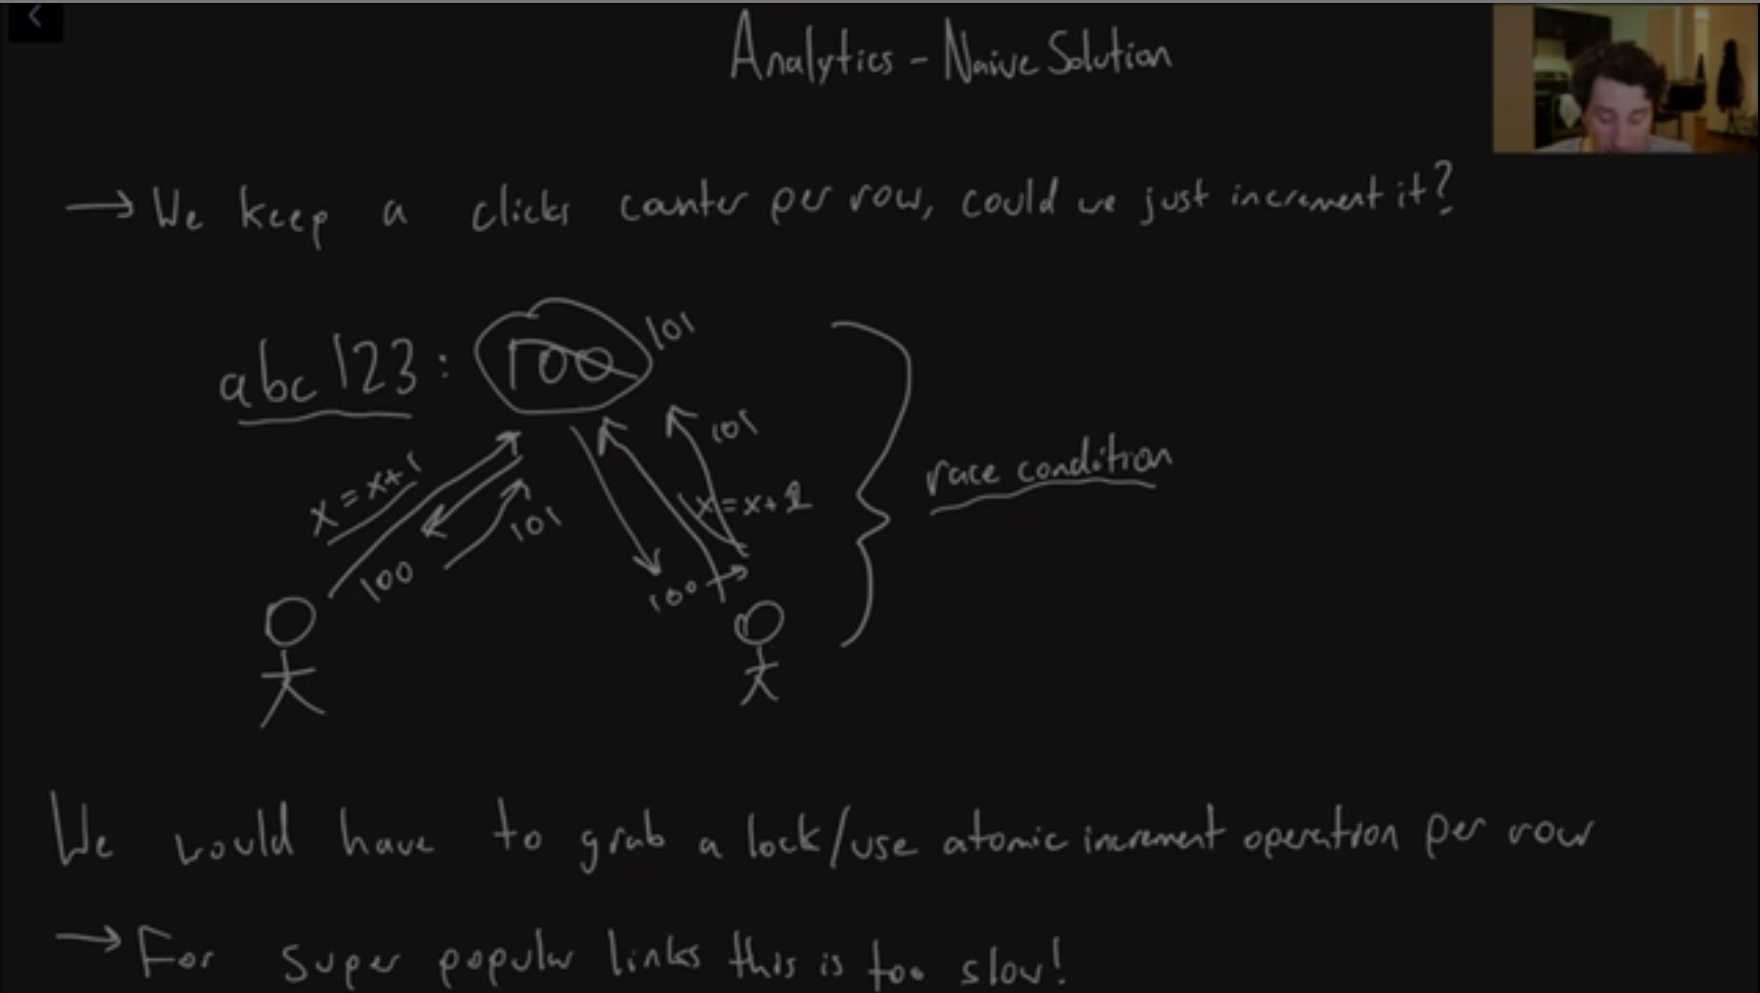 Analytics - Naive Solution
→ We keep a clicks counter per row, could we just increment it?
abc123: 100 101
x = x+1
100
101
101
x = x+1
100
race condition
We would have to grab a lock/use atomic increment operation per row
→ For super popular links this is too slow!